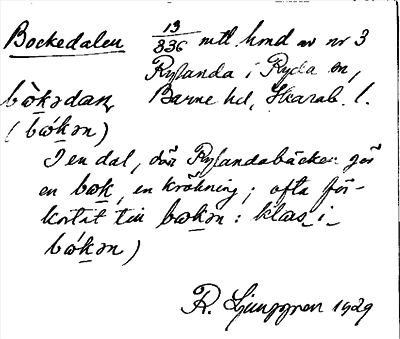 Bockedalen 13/336 mtl. hmd av nr 3
Rylanda i Ryda sn,
bòkədaɳ Barne hd, Skarab. l.
(bókən)
I en dal, där Rylandabäcken gör
en bok, en krökning; ofta för-
kortat till bokən: klas i
bókən)
R. Ljunggren 1929